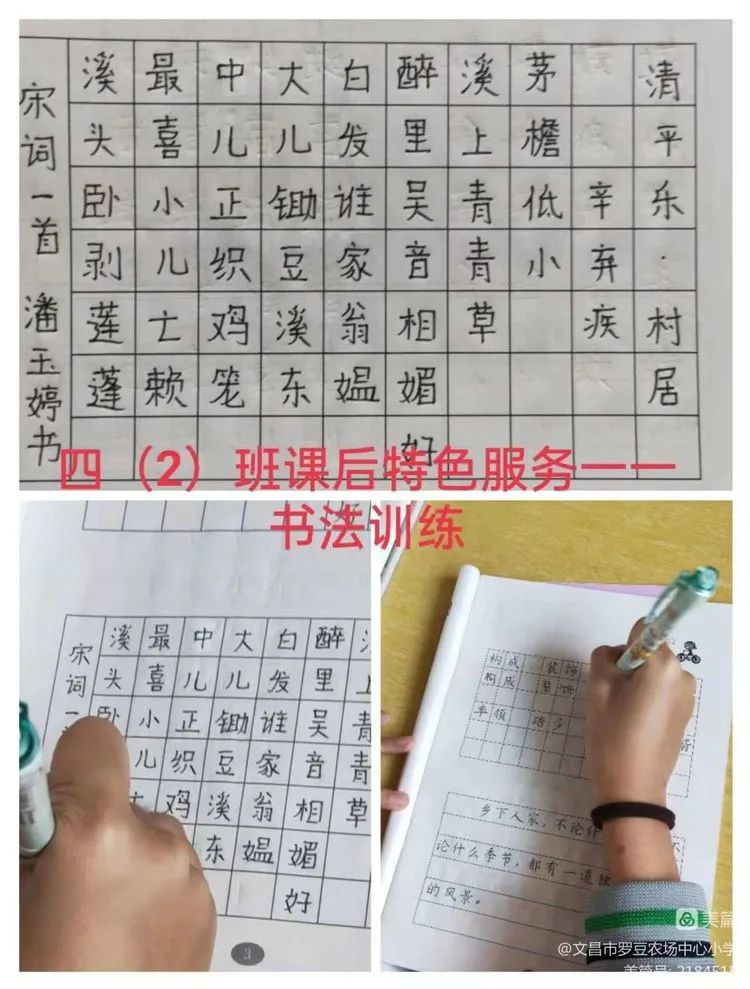 清平乐·村居
辛弃疾
茅檐低小
溪上青青草
醉里吴音相媚好
白发谁家翁媪
大儿锄豆溪东
中儿正织鸡笼
最喜小儿亡赖
溪头卧剥莲蓬
宋词一首 潘玉婷书
四（2）班课后特色服务——
书法训练
青青草
醉里吴音相媚好
白发谁家翁媪
大儿锄豆溪东
中儿正织鸡
最喜小儿
溪头卧
宋词一
3
构成 装饰
构成 装饰
率领
乡下人家，不论什 不
论什么季节，都有一道独
的风景。
美篇
@文昌市罗豆农场中心小学
美篇号: 2184515